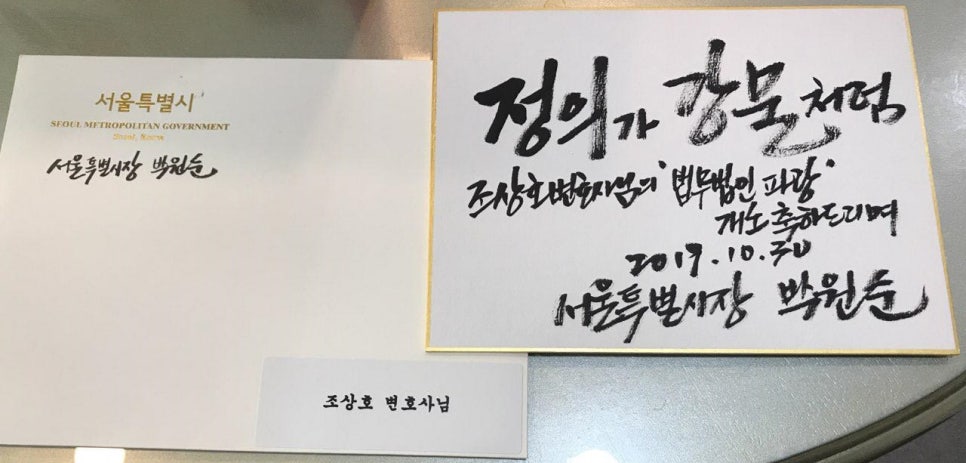 서울특별시
SEOUL METROPOLITAN GOVERNMENT
Seoul, Korea
서울특별시장 박원순
조상호 변호사님
정의가 강물처럼
조상호변호사님의 '법무법인 파랑'
개소 축하드리며
2019.10.30
서울특별시장 박원순